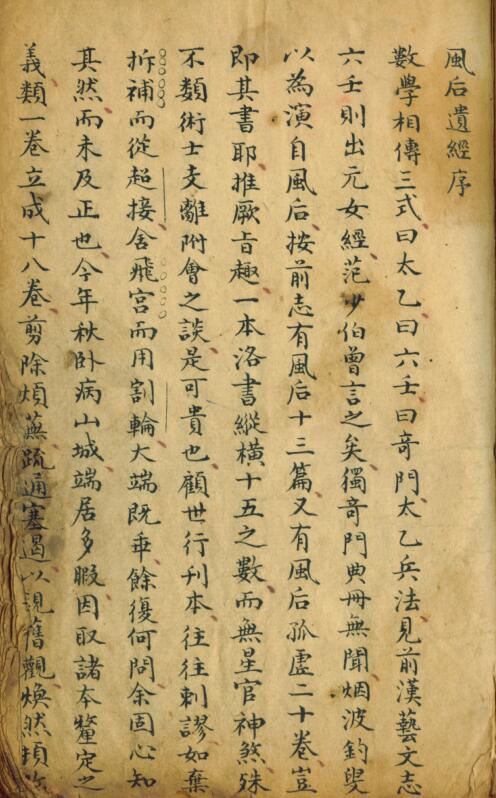 風后遺經序
數學相傳三式曰太乙曰六壬曰竒門太乙兵法見前漢藝文志
六壬則出元女經范少伯曾言之矣獨竒門典冊無聞烟波釣叟
以為演自風后按前志有風后十三篇又有風后孤虛二十卷豈
即其書耶推厥旨趣一本洛書縱橫十五之數而無星官神煞殊
不類術士支離附會之談是可貴也顧世行刊本往往剌謬如棄
拆補而從超接舍飛宮而用割輪大端既乖餘復何問余固心知
其然而未及正也今年秋卧病山城端居多暇因取諸本釐定之
義類一卷立成十八卷剪除煩蕪疏通塞遏以視舊觀煥然頓